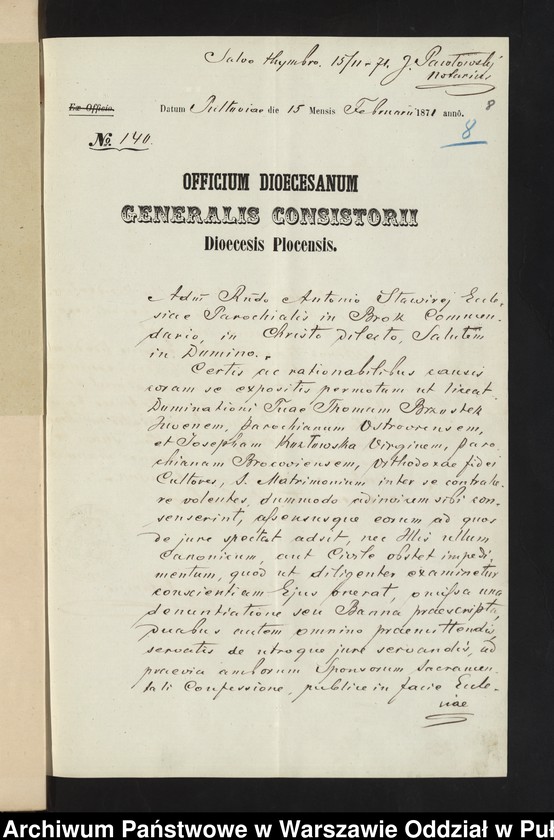 Salvo thymbro. 15/II - 71. J. Pawłowski
Notarius
Ex Officio.
Datum Pultaviae die 15 Mensis Februarii 1871 annô.
8
8
No. 140.
OFFICIUM DIOECESANUM
GENERALIS CONSISTORII
Dioecesis Plocensis.
Adm Rndo Antonio Stawirej Eccle-
siae Parochialis in Brok Commen-
dario, in Christo Dilecto, Salutem
in Domino.
Certis ac rationabilibus causis
coram se expositis permotum ut liceat
Dominationi Tuae Thomam Brzostek
Juvenem, parochianum Ostroviensem,
et Josepham Kozłowska Virginem, paro-
chianam Brocoviensem, Orthodoxae fidei
Cultores, S. Matrimonium inter se contrahe-
re volentes, dummodo adinvicem sibi con-
senserint, assensusque eorum ad quos
de jure spectat adsit, nec Illis ullum
Canonicum, aut Civile obstet impedi-
mentum, quód ut diligenter examinetur
conscientiam Ejus onerat, omissa una
denuntiatione seu Banna praescripta,
duabus autem omnino praemittendis,
servatis de utroque jure servandis, ad
praevia amborum Sponsorum Sacramen-
tali Confessione, publice in facie Eccle-
siae
Archiwum Państwowe w Warszawie Oddział w Puł